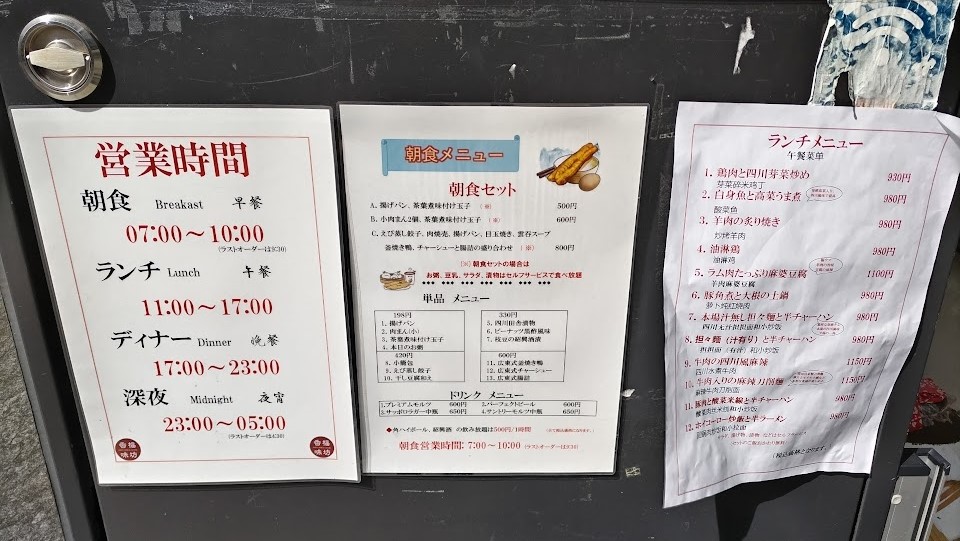 営業時間
朝食 Breakast 早餐
07:00～10:00
(ラストオーダーは9:30)
ランチ Lunch 午餐
11:00～17:00
ディナー Dinner 晚餐
17:00～23:00
深夜 Midnight 夜宵
23:00～05:00
(ラストオーダーは4:30)
香福味坊
香福味坊
朝食メニュー
朝食セット
A. 揚げパン、茶葉煮味付け玉子 (※) 500円
B. 小肉まん2個、茶葉煮味付け玉子 (※) 600円
C. えび蒸し餃子、肉焼売、揚げパン、目玉焼き、雲呑スープ
釜焼き鴨、チャーシューと腸詰の盛り合わせ (※) 800円
(※) 朝食セットの場合は
お粥、豆乳、サラダ、漬物はセルフサービスで食べ放題
単品 メニュー
198円
1. 揚げパン
2. 肉まん(小)
3. 茶葉煮味付け玉子
4. 本日のお粥
420円
8. 小籠包
9. えび蒸し餃子
10. 干し豆腐和え
330円
5. 四川田舎漬物
6. ピーナッツ黒酢風味
7. 枝豆の紹興酒漬
600円
11. 広東式釜焼き鴨
12. 広東式チャーシュー
13. 広東式腸詰
ドリンク メニュー
1.プレミアムモルツ 600円 2.パーフェクトビール 600円
3.サッポロラガー中瓶 650円 4.サントリーモルツ中瓶 650円
◆角ハイボール、紹興酒 の飲み放題は500円/1時間
朝食営業時間: 7:00～10:00 (ラストオーダーは9:30)
ランチメニュー
午餐菜单
1. 鶏肉と四川芽菜炒め 930円
芽菜碎米鸡丁
2. 白身魚と高菜うま煮 980円
酸菜鱼
3. 羊肉の炙り焼き 980円
炒烤羊肉
4. 油淋鶏 980円
油淋鸡
5. ラム肉たっぷり麻婆豆腐 1100円
羊肉麻婆豆腐
6. 豚角煮と大根の土鍋 980円
萝卜炖红烧肉
7. 本場汁無し担々麺と半チャーハン 980円
四川无汁担担面和小炒饭
8. 担々麺（汁有り）と半チャーハン 980円
担担面（有汁）和小炒饭
9. 牛肉の四川風麻辣 1150円
四川水煮牛肉
10. 牛肉入りの麻辣刀削麺 1150円
麻辣牛肉刀削面
11. 豚肉と酸菜米線と半チャーハン 980円
12. ホイコーロー炒飯と半ラーメン 980円
回锅肉炒饭和小拉面
(税込価格となります)